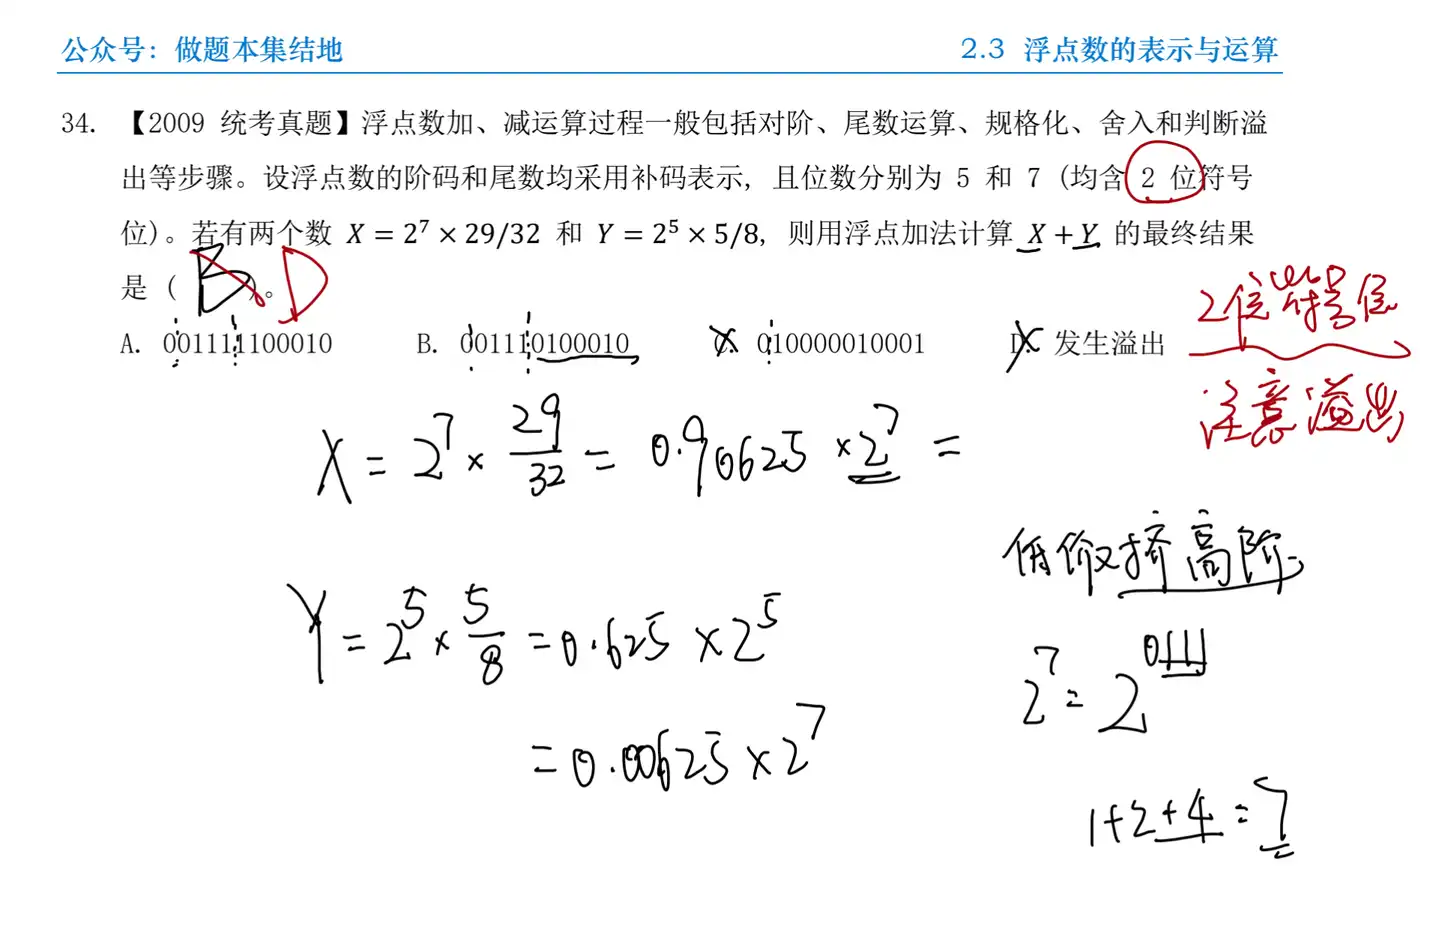 公众号：做题本集结地
2.3 浮点数的表示与运算
34. 【2009 统考真题】浮点数加、减运算过程一般包括对阶、尾数运算、规格化、舍入和判断溢
出等步骤。设浮点数的阶码和尾数均采用补码表示，且位数分别为 5 和 7（均含 2 位符号
位）。若有两个数 X = 2⁷ × 29/32 和 Y = 2⁵ × 5/8，则用浮点加法计算 X + Y 的最终结果
是（ B ）。 D
A. 001111100010 B. 001110100010 C. 010000010001 D. 发生溢出
2位符号位
注意溢出
X = 2⁷ × 29/32 = 0.90625 × 2⁷ =
低阶对高阶
Y = 2⁵ × 5/8 = 0.625 × 2⁵
2⁷ = 2⁰¹¹¹
= 0.00625 × 2⁷
1+2+4=7